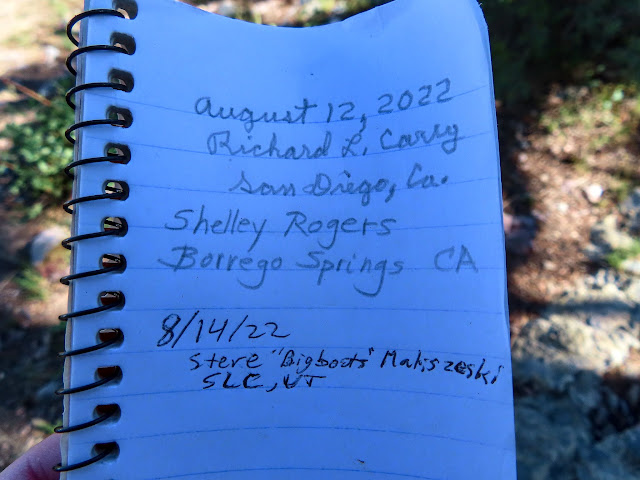 August 12, 2022
Richard L. Carey
San Diego, Ca.
Shelley Rogers
Borrego Springs CA
8/14/22
Steve "Bigboots" Maliszeski
SLC, UT